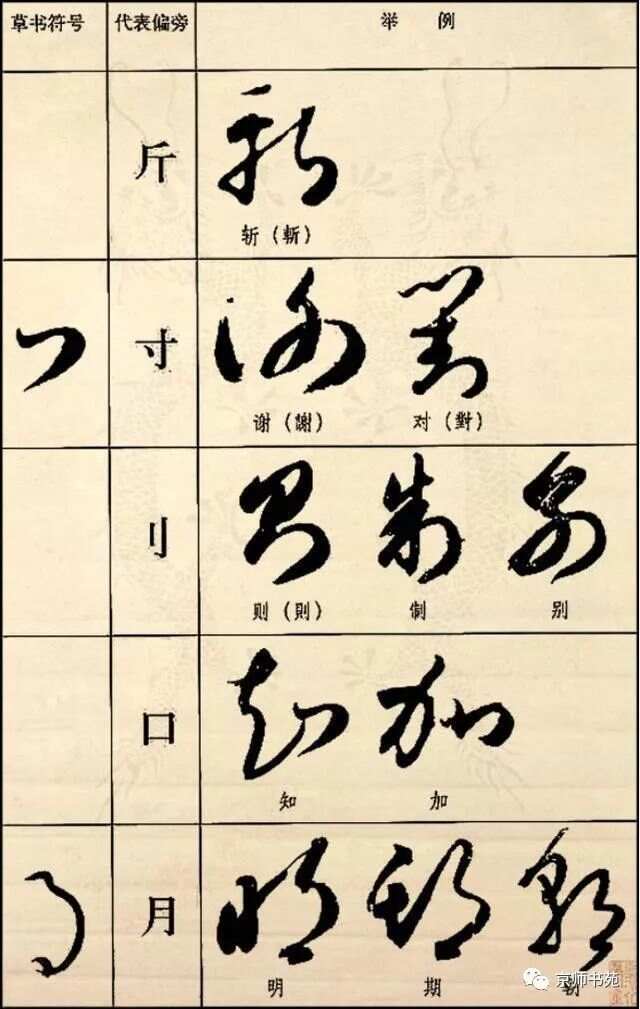 草书符号 代表偏旁 举例
斤
斩（斬）
寸
谢（謝） 对（對）
刂
则（則） 制 别
口
知 加
月
明 期 朝
京师书苑